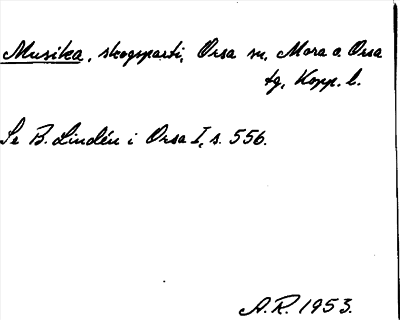 Musika, skogsparti, Orsa sn, Mora o Orsa
tg, Kopp. l.
Se B. Lindén i Orsa I, s. 556.
A.R. 1953.